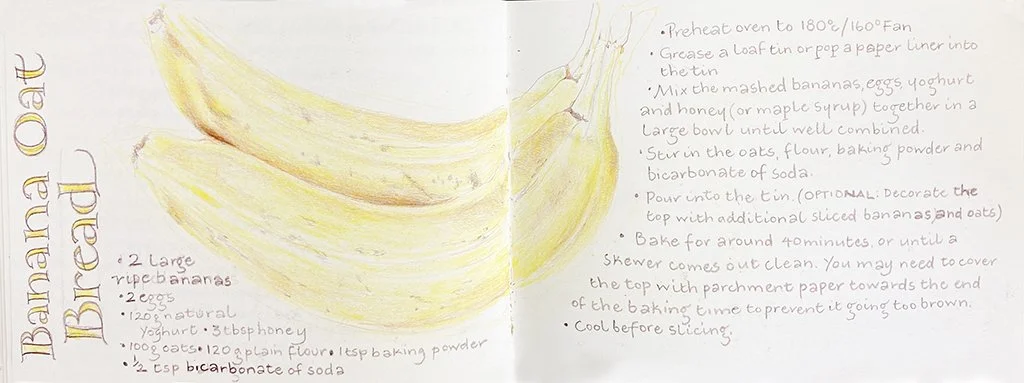 Banana Oat
Bread
• 2 Large
ripe bananas
• 2 eggs
• 120g natural
Yoghurt • 3 tbsp honey
• 100g oats • 120g plain flour • 1 tsp baking powder
• ½ tsp bicarbonate of soda
• Preheat oven to 180°c/160°Fan
• Grease a loaf tin or pop a paper liner into
the tin
• Mix the mashed bananas, eggs, yoghurt
and honey (or maple syrup) together in a
large bowl until well combined.
• Stir in the oats, flour, baking powder and
bicarbonate of soda.
• Pour into the tin. (OPTIONAL: Decorate the
top with additional sliced bananas and oats)
• Bake for around 40 minutes, or until a
skewer comes out clean. You may need to cover
the top with parchment paper towards the end
of the baking time to prevent it going too brown.
• Cool before slicing.